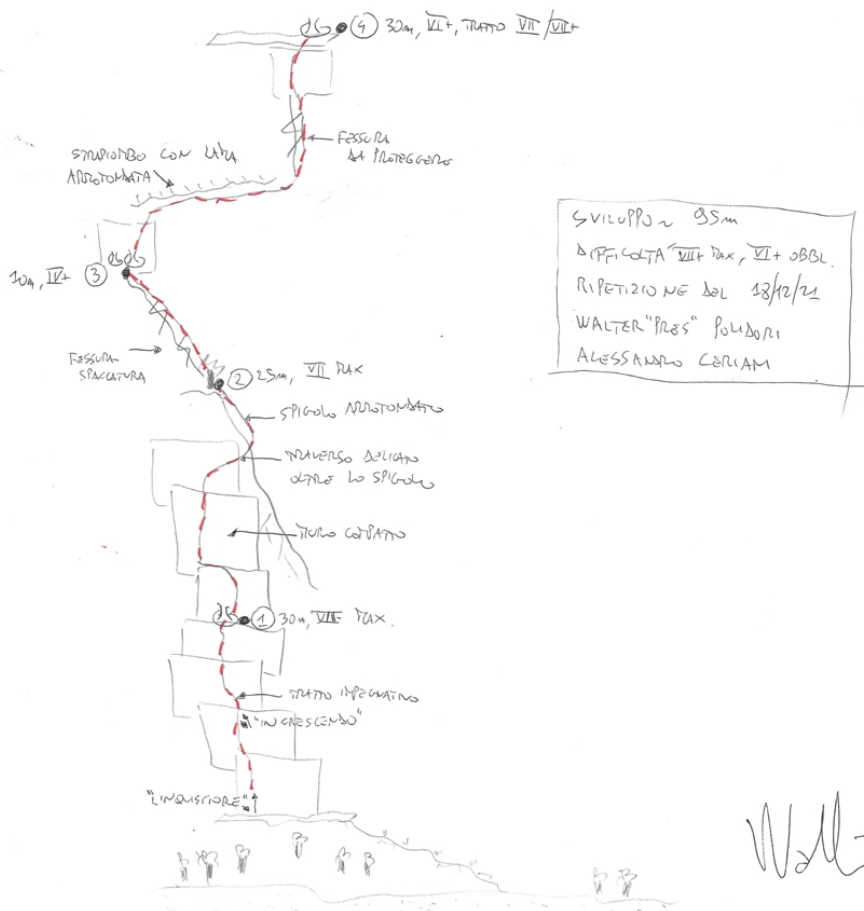 ④ 30m, VI+, TRATTO VII/VII+
FESSURA
DA PROTEGGERE
STRAPIOMBO CON LAMA
ARROTONDATA
10m, IV+ ③
FESSURA-
SPACCATURA
② 25m, VII MAX
SPIGOLO ARROTONDATO
TRAVERSO DELICATO
OLTRE LO SPIGOLO
MURO COMPATTO
① 30m, MAX.
TRATTO IMPEGNATIVO
"IN CRESCENDO"
"L'INQUISITORE"
SVILUPPO ~ 95m
DIFFICOLTÀ VII+ MAX, VI+ OBBL.
RIPETIZIONE DEL 18/12/21
WALTER "PRES" POLIDORI
ALESSANDRO CERIANI